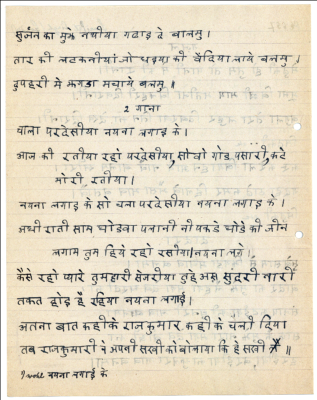 सुर्जन का मुझे नथीया गढाइ दे बालमु।
तार की लटकनीयां जो धइया की बैंदिया लाये बलमु।
दुपहरी मे झगडा मचाये बलमु॥
2 गाना
चाला परदेसीया नयना लगाइ के।
आज की रतीया रहां परदेसीया, सोचो गोड पसारी, कटे
मोरी, रतीया।
नयना लगाइ के सो चला परदेसीया नयना लगाइ के।
अधी राती साम घोडवा पलानी नी पकडे घोडे की जीन
लगाम तुम हिये रहो रसीया। नयना लगे।
कैसे रहो प्यारे तुमहारी सेजरीया तुहे असु सुदुरी नारी
तकत होइ है रहिया नयना लगाई।
अतना बात कहीके राजकुमार कहीके चली दिया
तब राजकुमारी ने अपनी सखी को बोलाया कि हे सखी ॥
नयना लगाई के